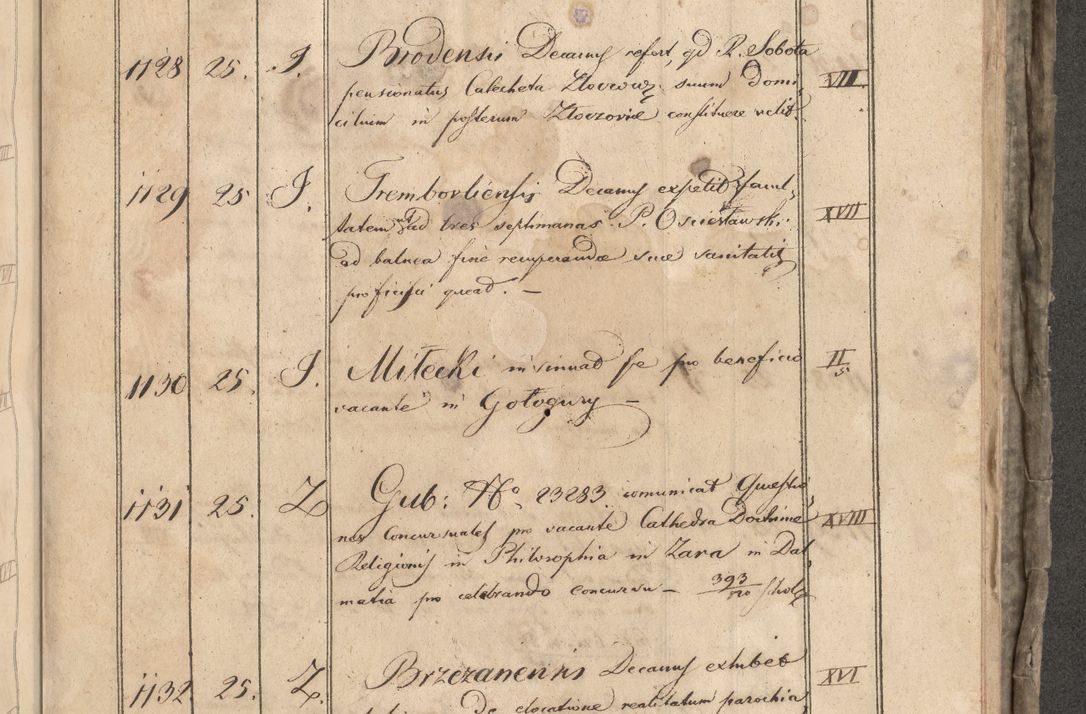 1128 25. J. Brodensis Decanus refert, qd R. Sobota VIII.
pensionatus Catecheta Zloczov. suum Domi
cilium in posterum Złoczoviæ constituere velit.
1129 25 J. Trembovliensis Decanus expetit facul, XVII
tatem ut ad tres septimanas P. Osiesławski
ad balnea fine recuperandæ suæ sanitatis
proficisci queat. —
1130 25. J. Miłecki insinuat se pro beneficio II
vacante in Gołogury —
1131 25. Z Gub: No. 23283 comunicat Quæstio
nes Concursuales pro vacante Cathedra Doctrinæ XVIII
Religionis in Philosophia in Zara in Dal,
matia pro celebrando concursu — 393/720 schol
1132 25. Z. Brzezanensis Decanus exhibet XVI
De elocatione realitatum parochia